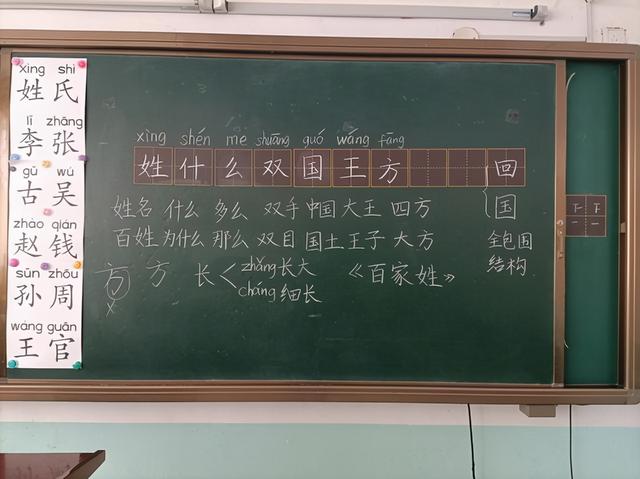 xìng shì
姓 氏
lǐ zhāng
李 张
gǔ wú
古 吴
zhào qián
赵 钱
sūn zhōu
孙 周
wáng guān
王 官
xìng shén me shuāng guó wáng fāng
姓 什 么 双 国 王 方 回
姓名 什么 多么 双手 中国 大王 四方 国
百姓 为什么 那么 双目 国土 王子 大方 全包围
方 方 长 zhǎng 长大 《百家姓》 结构
x cháng 细长
下 下
一 一